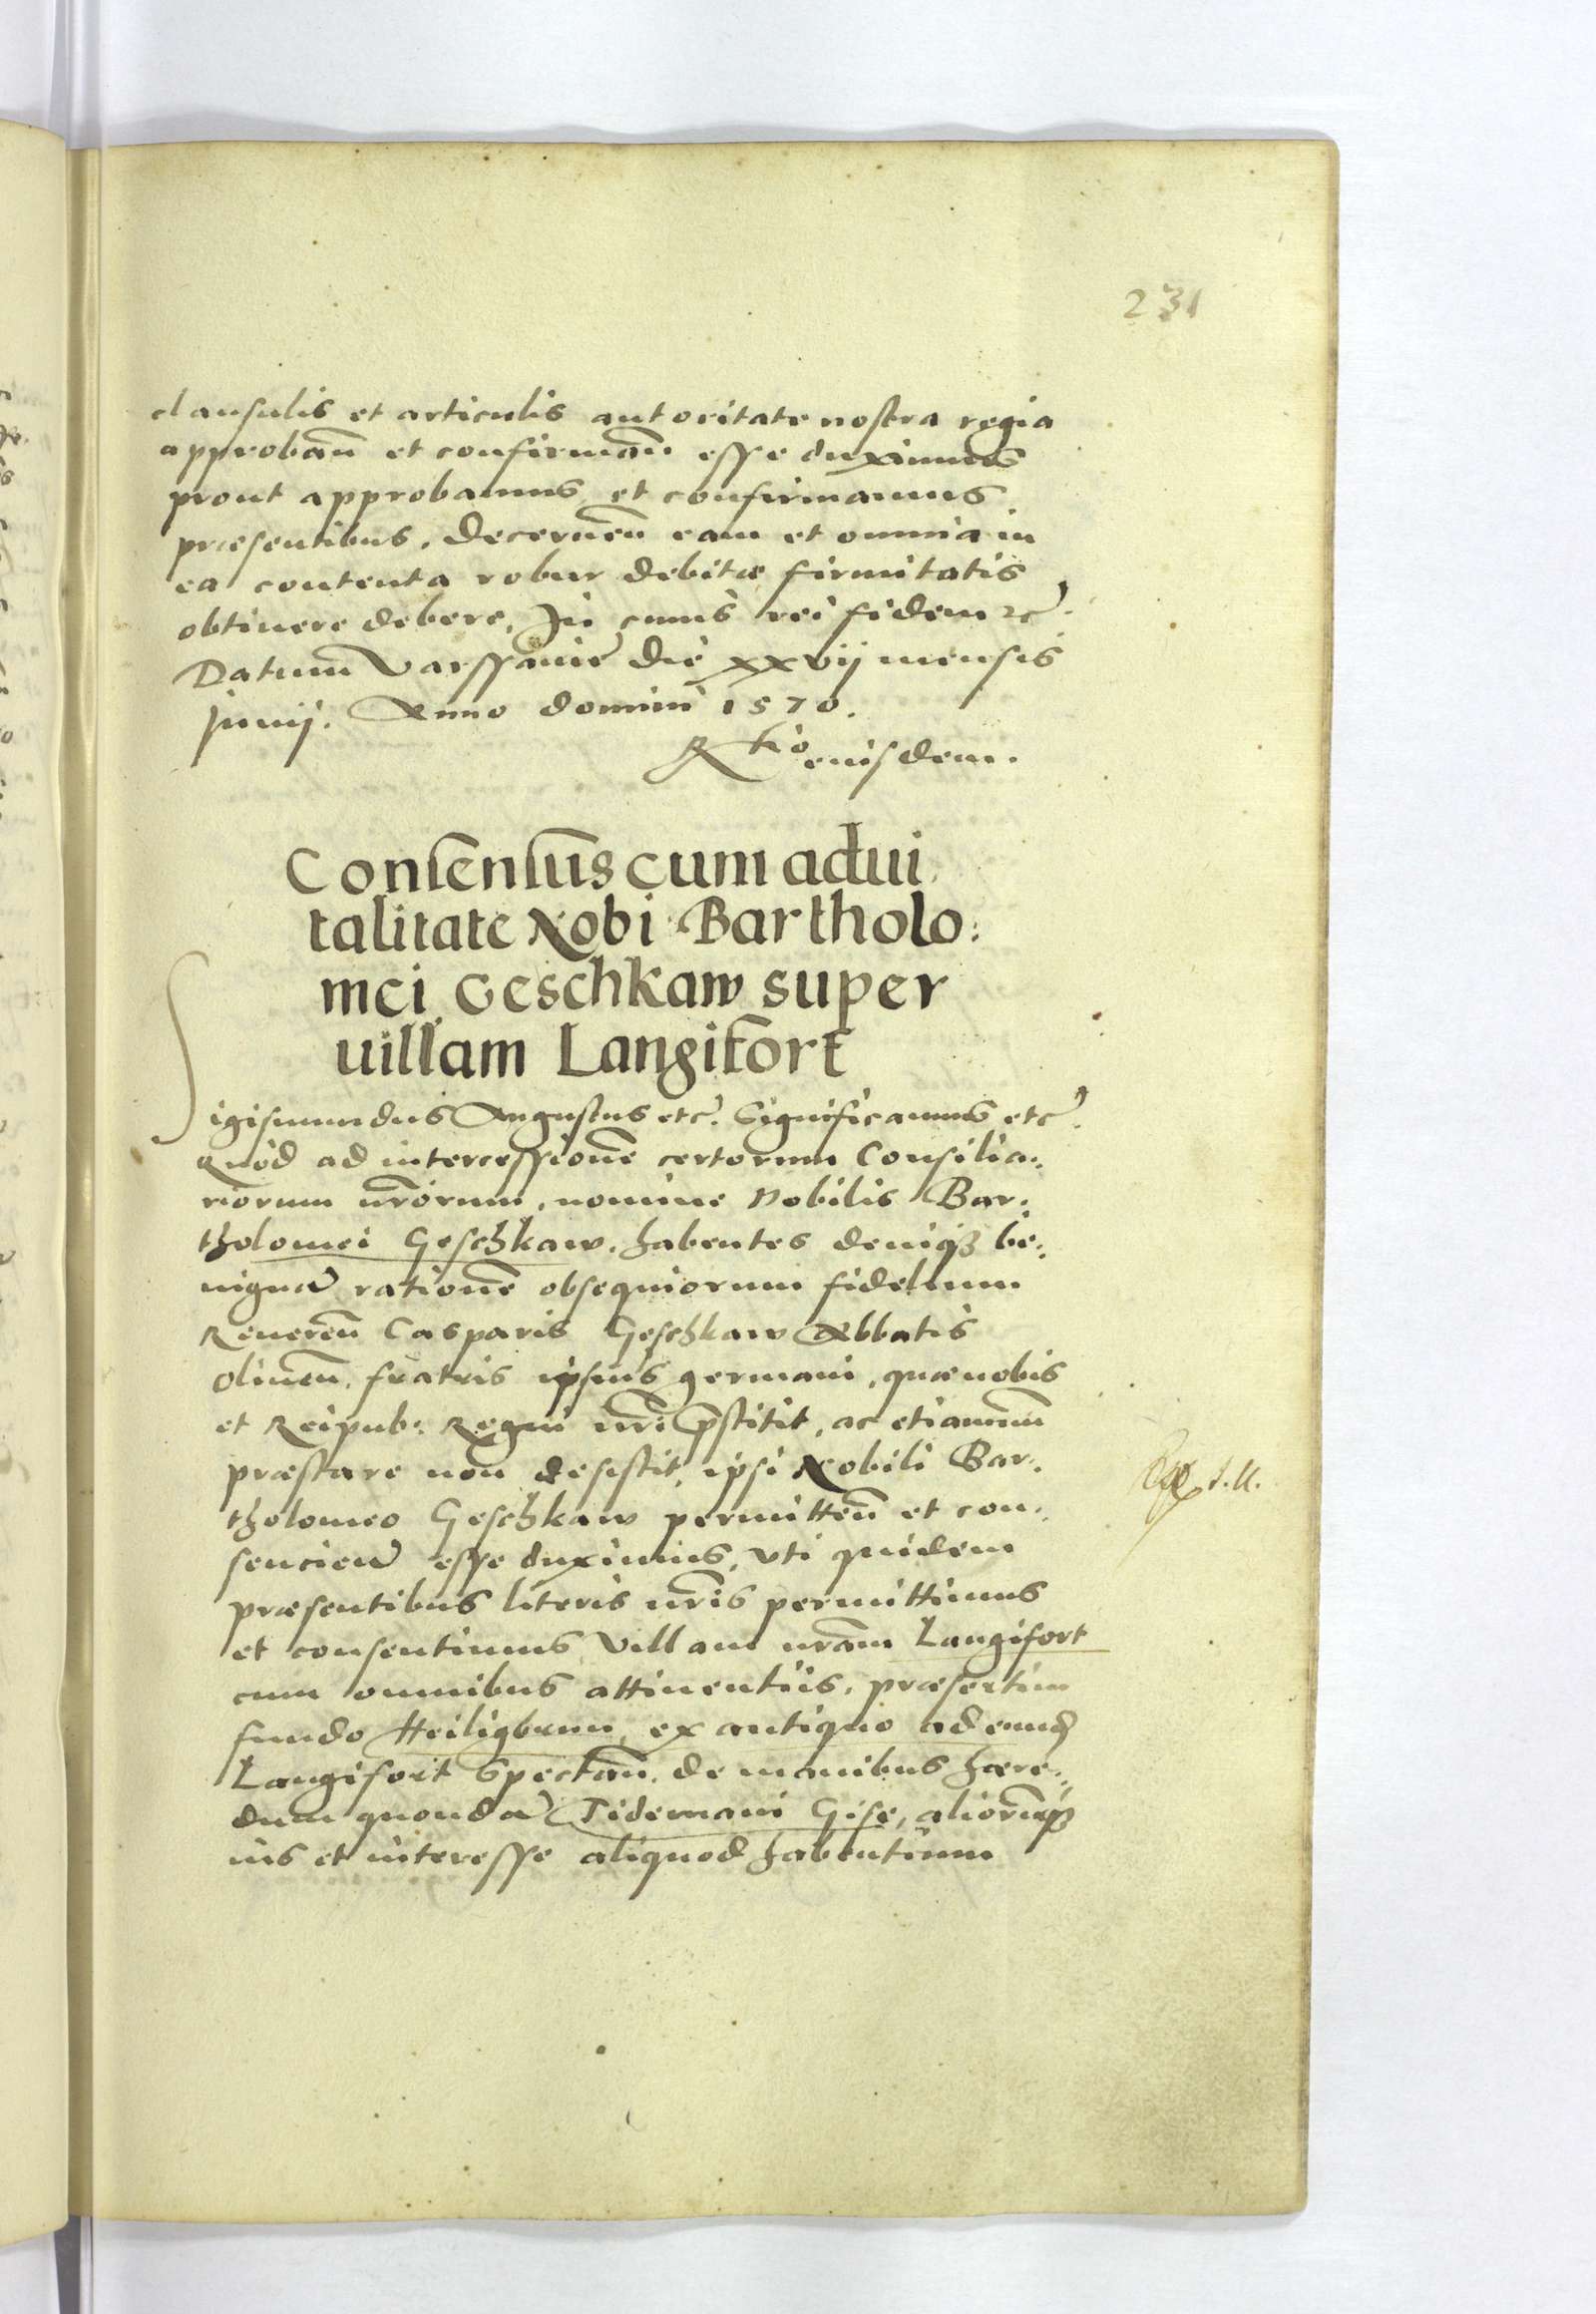 231
clausulis et articulis autoritate nostra regia
approbañ et confirmañ esse duximus
prout approbamus et confirmamus
præsentibus. Decerneñ eam et omnia in
ea contenta robur debitæ firmitatis
obtinere debere, In cuius rei fidem etc.
Datum Varssavie die xxvij mensis
Junij. Anno domini 1570.
Rtio eiusdem.
Consensus cum adui
talitate Nobi Bartholo:
mei Geschkaw super
uillam Langifort
Sigismundus Augustus etc. Significamus etc.
Quod ad intercessionē certorum Consilia:
riorum nr̄orum, nomine Nobilis Bar:
tholomei Geschkaw. habentes deniqȝ be:
nignā rationē obsequiorum fidelium
Reuereñ Casparis Geschkaw Abbatis
Oliueñ. fratris ipsius germani, quæ nobis
et Reipub: Regni nr̄i p̄stitit, ac etiamnū
præstare non desistit, ipsi Nobili Bar:
tholomeo Geschkaw permitteñ et con:
sencieñ esse duximus, vti quidem
præsentibus literis nr̄is permittimus
et consentimus Villam nr̄am Langifort
cum omnibus attinentiis, præsertim
fundo Heiligbrun, ex antiquo ad eund
Langifort spectañ. de manibus hære:
dum quondā Tidemani Gise, aliorumqȝ
ius et interesse aliquod habentium